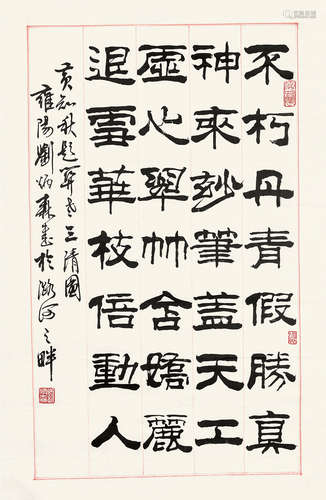 不朽丹青假勝真
神來玅筆蓋天工
虛心翠竹含嬌麗
退雪華枝倍動人
黃知秋題三清圖
雍陽劉炳森書於潞河之畔